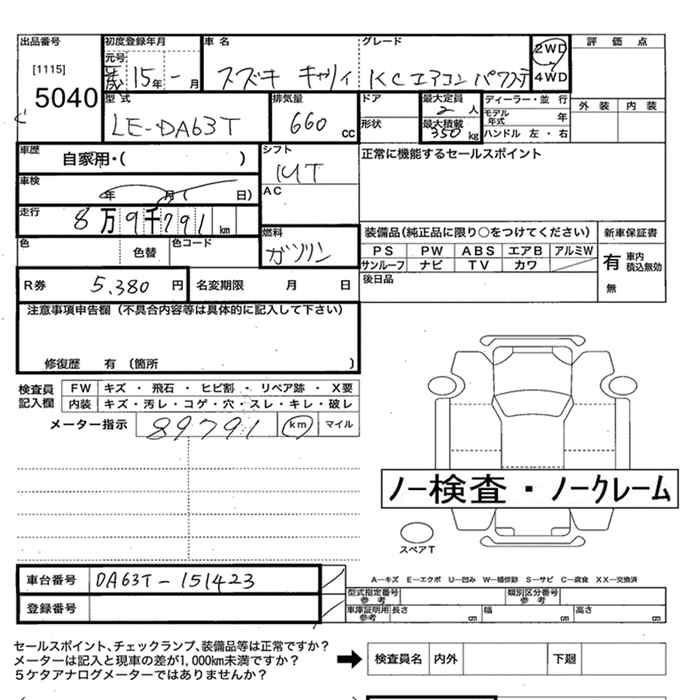 出品番号 初度登録年月 車名 グレード 2WD 評価点
[1115] 元号
5040 15年-月 スズキ キャリィ KCエアコンパワステ 4WD 外装 内装
型式 排気量 ドア 最大定員 ディーラー・並行
2人 モデル年式 年
LE-DA63T 660cc 形状 最大積載 350kg ハンドル 左・右
車歴 自家用・( ) シフト 正常に機能するセールスポイント
車検 年 月( 日) AC
走行 8万9千791km 燃料 装備品(純正品に限り○をつけてください) 新車保証書
色 色替 色コード ガソリン PS PW ABS エアB アルミW 有 車内積込無効
サンルーフ ナビ TV カワ
R券 5,380円 名変期限 月 日 後日品 無
注意事項申告欄(不具合内容等は具体的に記入して下さい)
修復歴 有(箇所 )
検査員記入欄 FW キズ・飛石・ヒビ割・リペア跡・X要
内装 キズ・汚レ・コゲ・穴・スレ・キレ・破レ
メーター指示 89791 km マイル
ノー検査・ノークレーム
スペアT
車台番号 DA63T-151423 A-キズ E-エクボ U-凹み W-補修跡 S-サビ C-腐食 XX-交換済
型式指定番号参考 類別区分番号参考
登録番号 車庫証明用参考 長さ cm 幅 cm 高さ cm
セールスポイント、チェックランプ、装備品等は正常ですか?
メーターは記入と現車の差が1,000km未満ですか? 検査員名 内外 下廻
5ケタアナログメーターではありませんか?